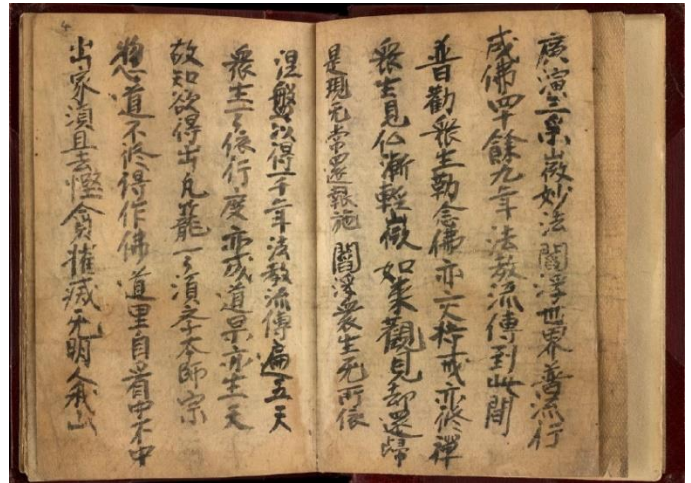 廣演三乘微妙法閻浮世界普流行
成佛四十餘九年法教流傳到此間
普勸衆生勤念佛亦交持戒亦修禪
衆生見仏漸輕微如来觀見却還歸
是現无常還報施閻浮衆生无所依
涅盤以得一千年法教流傳遍五天
衆生了依行度亦成道果亦生天
故知欲得出凡籠一了須学本師宗
惣道不修得作佛道里自看中不中
出家湏且去慳貪摧滅无明人我山
4